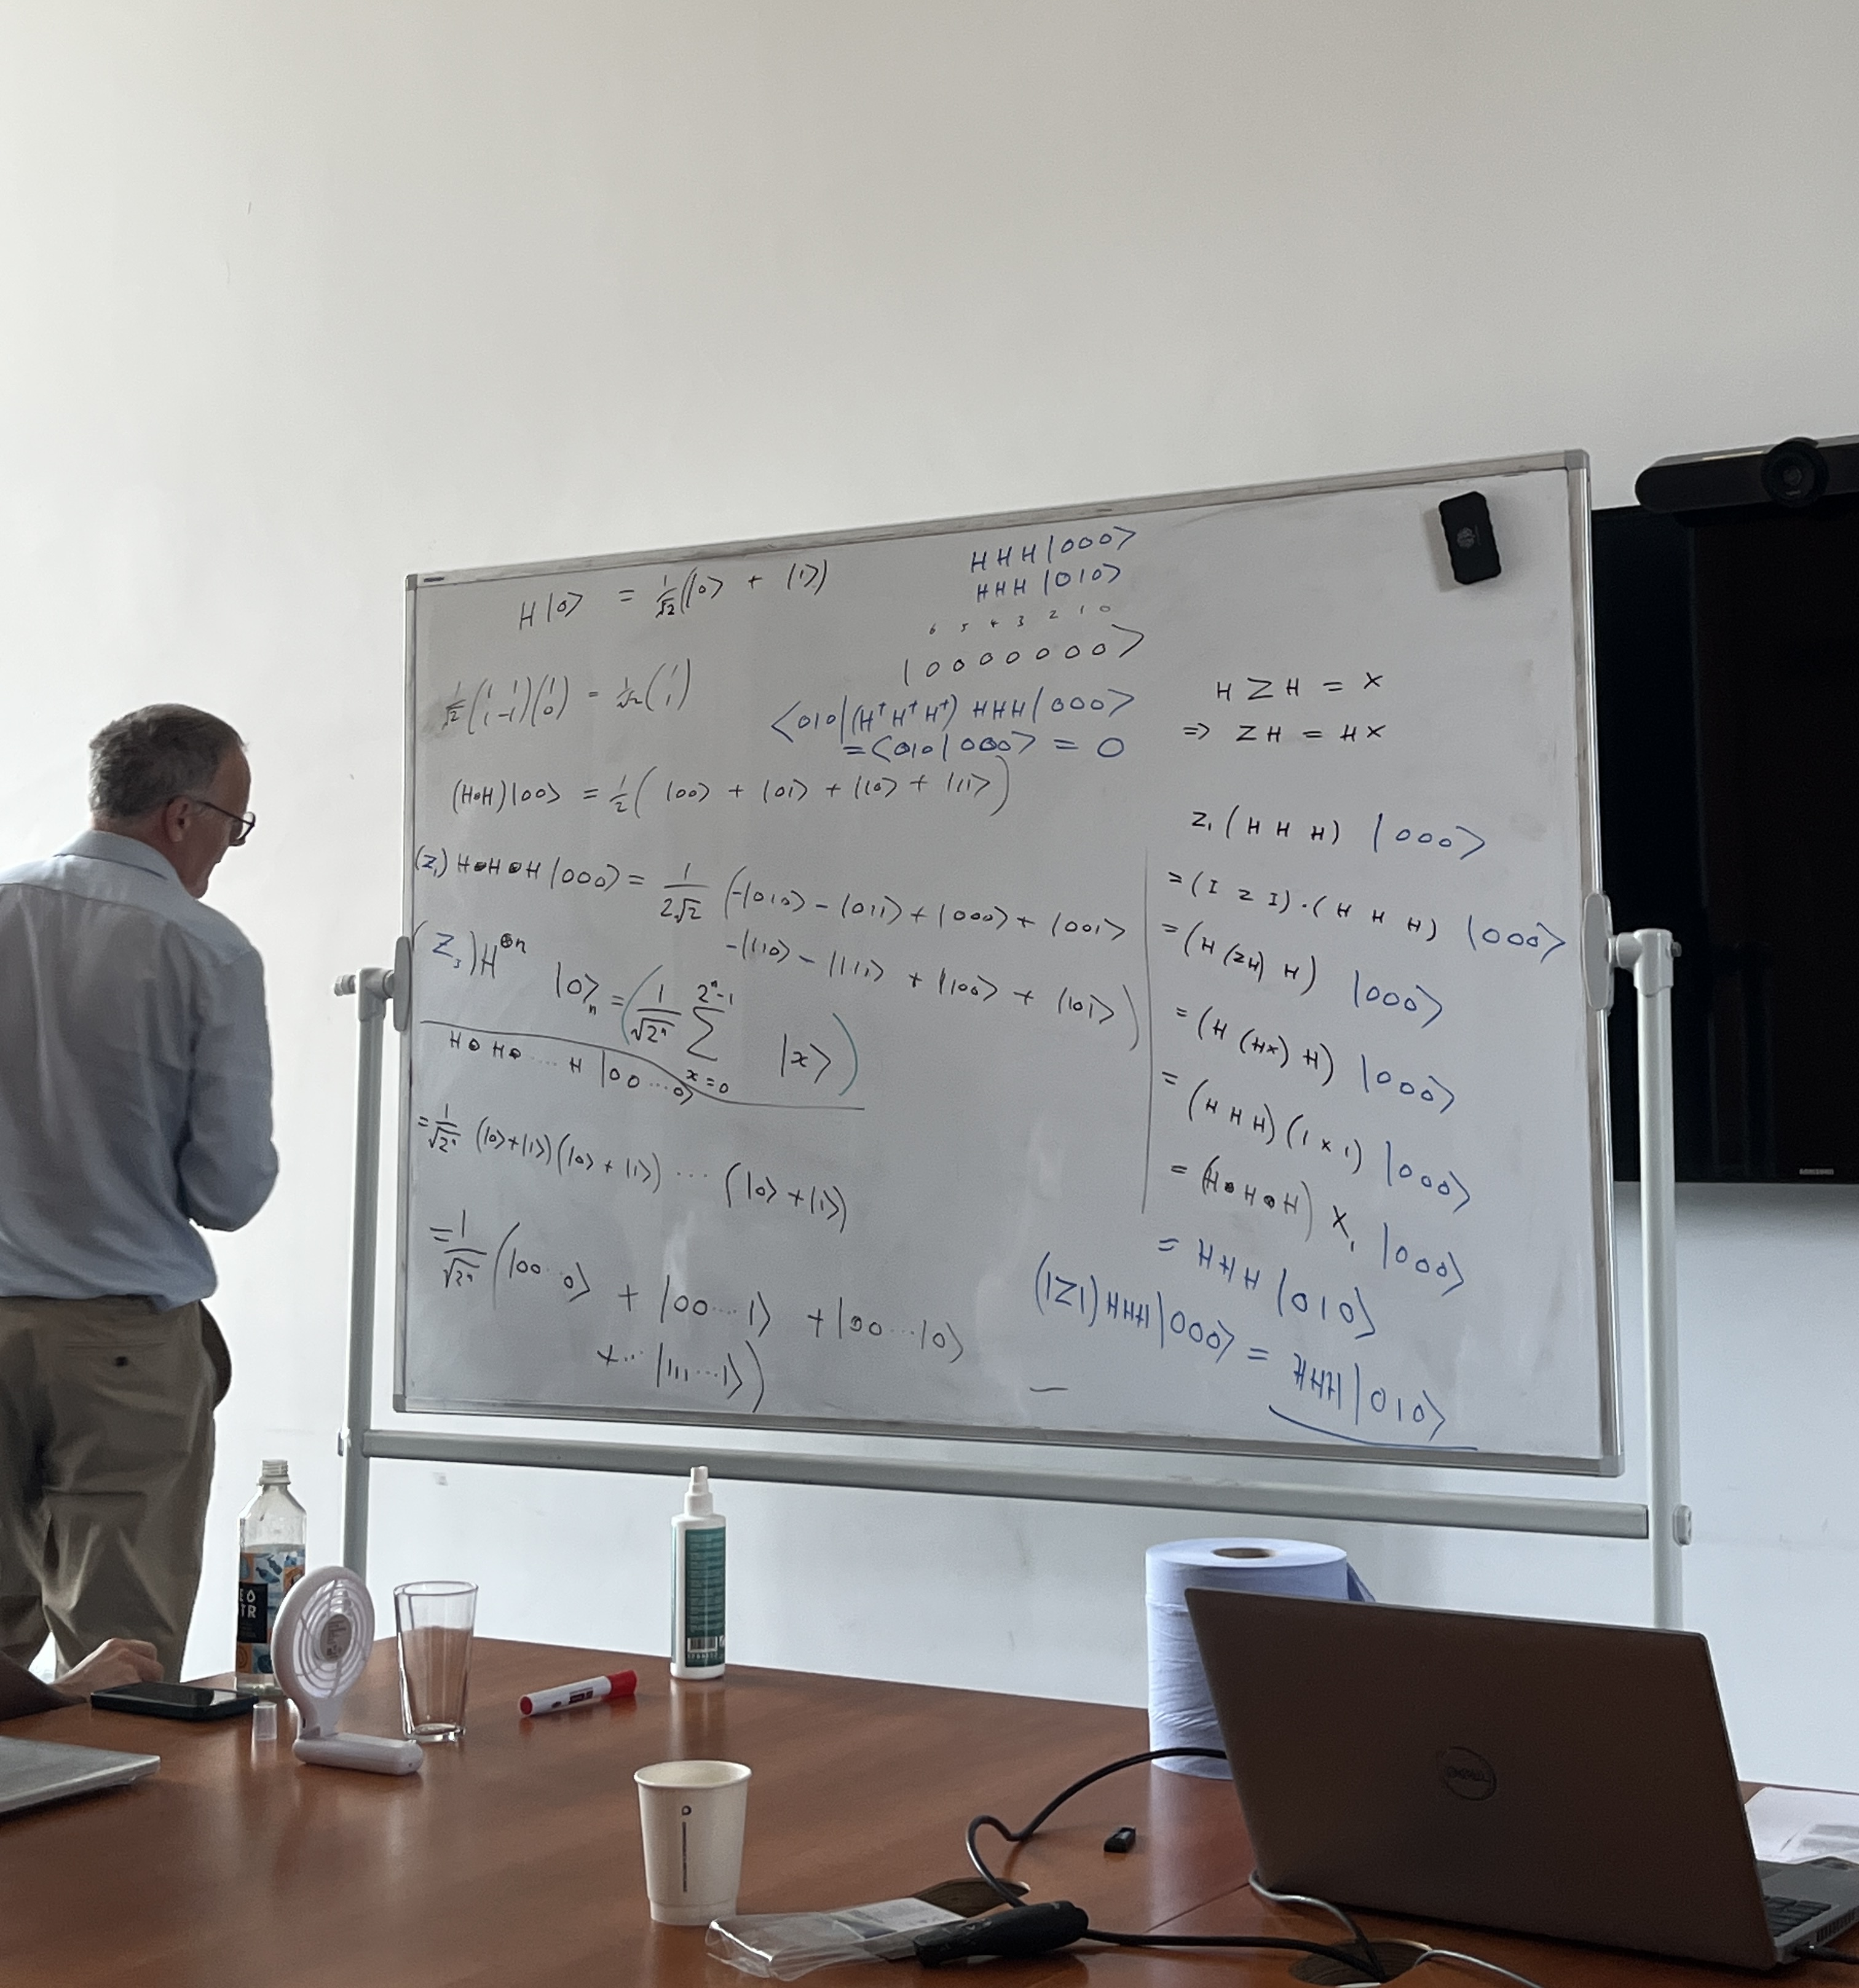 H|0⟩ = 1/√2(|0⟩ + |1⟩)
1/√2 (1 1 / 1 -1)(1 / 0) = 1/√2 (1 / 1)
(H⊗H)|00⟩ = 1/2( |00⟩ + |01⟩ + |10⟩ + |11⟩ )
(Z₁) H⊗H⊗H |000⟩ = 1/2√2 (-|010⟩ - |011⟩ + |000⟩ + |001⟩
-|110⟩ - |111⟩ + |100⟩ + |101⟩ )
(Z₃)H⊗n |0⟩n = ( 1/√2ⁿ ∑ x=0 2ⁿ-1 |x⟩ )
H⊗H⊗ ... H |00...0⟩
= 1/√2ⁿ (|0⟩+|1⟩)(|0⟩ + |1⟩) ... (|0⟩ + |1⟩)
= 1/√2ⁿ (|00..0⟩ + |00...1⟩ + |00...10⟩
+... |111...1⟩)
HHH|000⟩
HHH|010⟩
6 5 4 3 2 1 0
|0000000⟩
⟨010|(H†H†H†) HHH|000⟩
=⟨010|000⟩ = 0
HZH = X
⇒ ZH = HX
Z₁(HHH) |000⟩
= (I Z I)·(H H H) |000⟩
= (H (ZH) H) |000⟩
= (H (HX) H) |000⟩
= (H H H)(1 X 1) |000⟩
= (H⊗H⊗H) X₁ |000⟩
= HHH |010⟩
(1Z1)HHH|000⟩ = HHH|010⟩
SAMSUNG
DELL